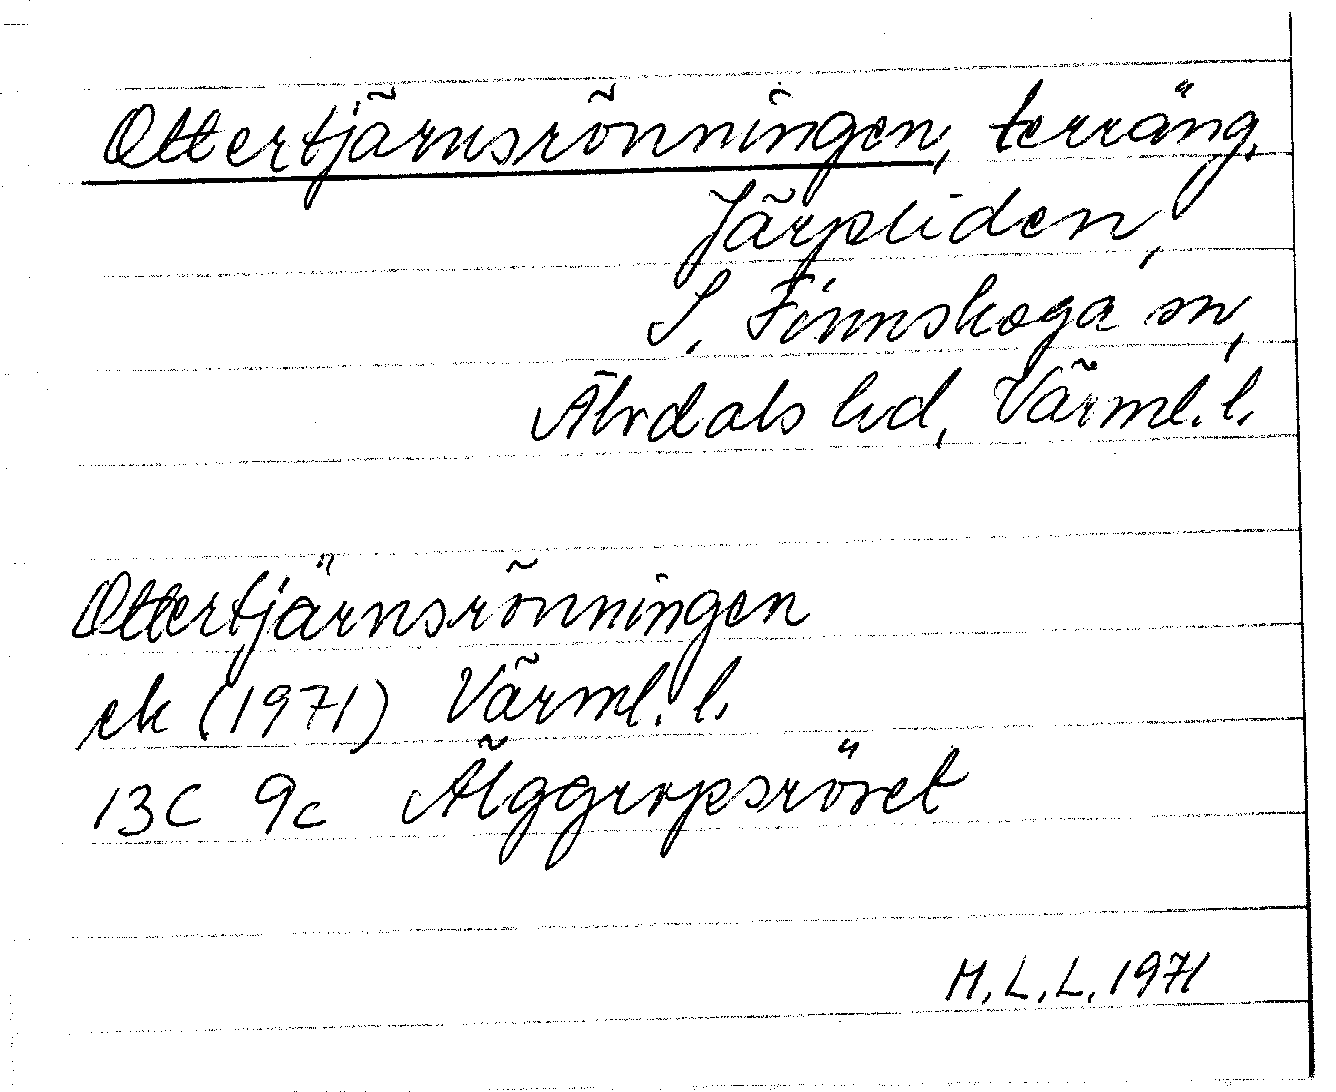 Ottertjärnsrönningen, terräng.
Järpliden,
S. Finnskoga sn,
Älvdals hd, Värml. l.
Ottertjärnsrönningen
ek (1971) Värml. l.
13C 9c Älggropsröset
M.L.L. 1971